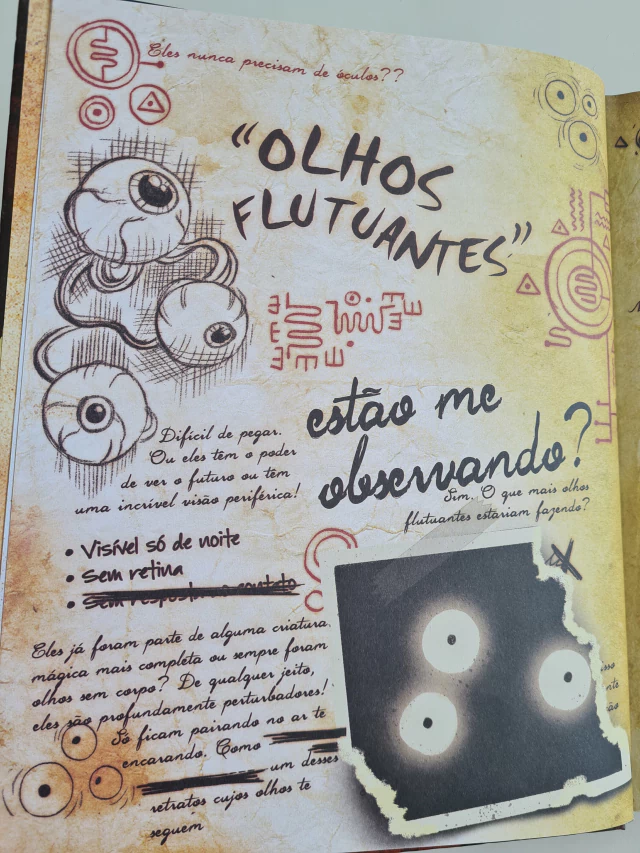 Eles nunca precisam de óculos??
"OLHOS
FLUTUANTES"
estão me
observando?
Sim. O que mais olhos
flutuantes estariam fazendo?
Difícil de pegar.
Ou eles têm o poder
de ver o futuro ou têm
uma incrível visão periférica!
• Visível só de noite
• Sem retina
• Sem resposta ao contato
Eles já foram parte de alguma criatura
mágica mais completa ou sempre foram
olhos sem corpo? De qualquer jeito,
eles são profundamente perturbadores!
Só ficam pairando no ar te
encarando. Como
um desses
retratos cujos olhos te
seguem